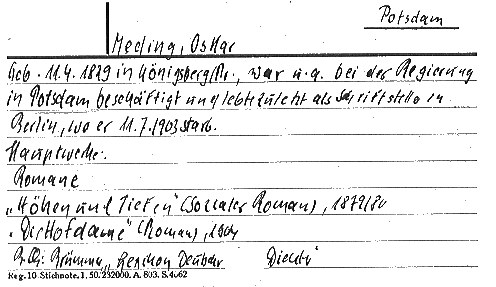 Potsdam
Meding, Oskar
Geb. 11.4.1829 in Königsberg/Pr., war u.a. bei der Regierung
in Potsdam beschäftigt und lebte zuletzt als Schriftsteller in
Berlin, wo er 11.7.1903 starb.
Hauptwerke:
Romane
„Höhen und Tiefen" (Sozialer Roman), 1879/80
„Die Hofdame" (Roman),
Brümmer, Lexikon Deutscher Dichter
Reg. 10 Stichnote. 1. 50. 232000. A. 803. S. 4062